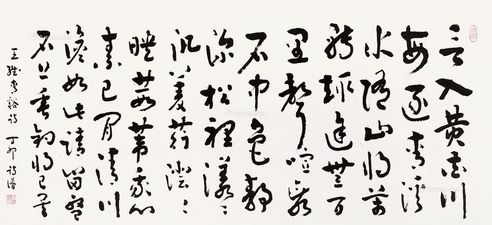 言入黄花川
每逐青溪
水隨山將萬
轉趣途無百
里聲喧亂
石中色静
深松裡漾々
汎菱荇澄々
映葭葦我心
素已閒清川
澹如此請留盤
石上垂釣將已矣
王維青谿詩 丁卯